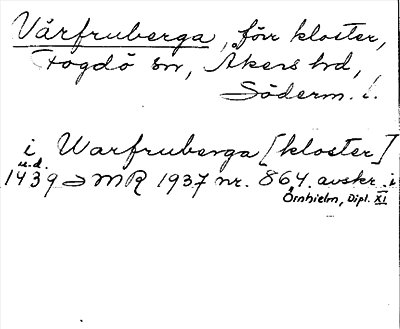 Vårfruberga, förr kloster,
Fogdö sn, Åkers hd,
Söderm. l.
i Warfruberga [kloster]
u.d.
1439 MR 1937 nr. 864. avskr. i
Örnhielm, Dipl. XI